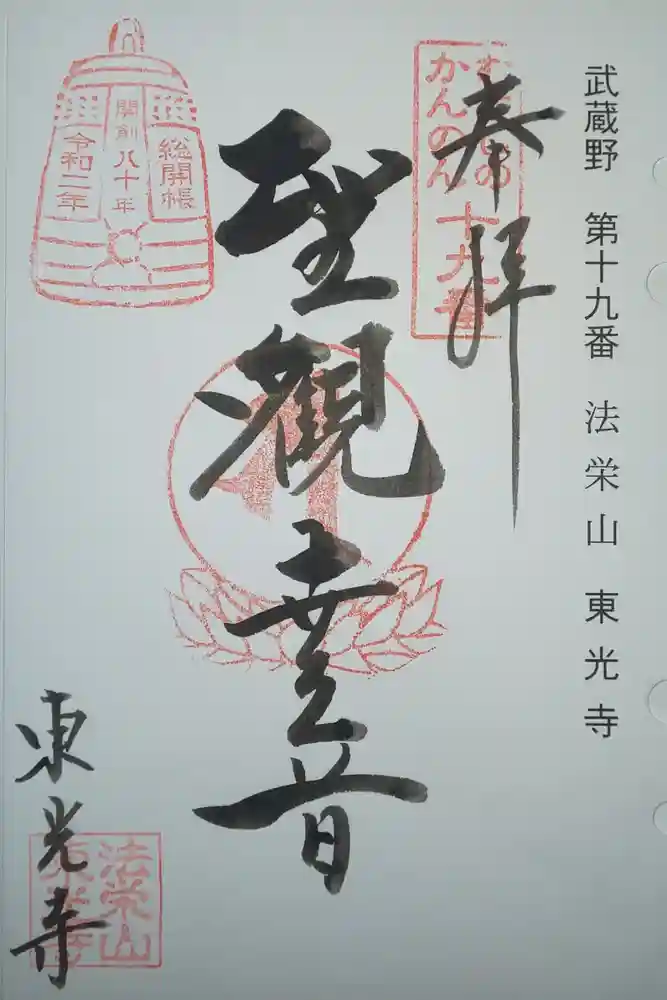 武蔵野 第十九番 法栄山 東光寺
奉拝
むさしの
かんのん
十九番
聖觀世音
総開帳
開創八十年
令和二年
東光寺
法栄山
東光寺